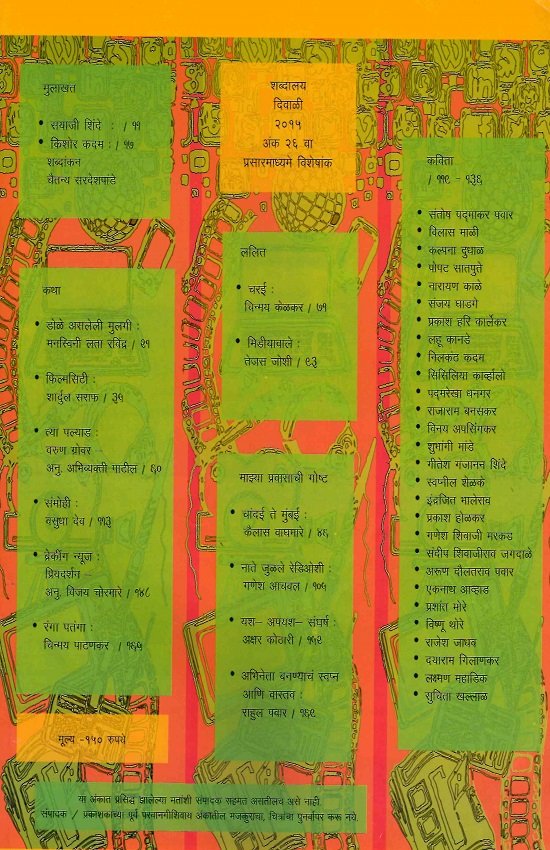 मुलाखत
• सयाजी शिंदे : / ११
• किशोर कदम : / १७
शब्दांकन
चैतन्य सरदेशपांडे
कथा
• डोळे असलेली मुलगी :
मनस्विनी लता रविंद्र / २१
• फिल्मसिटी :
शार्दुल सराफ / ३५
• त्या पल्याड :
वरुण ग्रोवर –
अनु. अभिव्यक्ती पाटील / ६०
• संमोही :
वसुधा देव / ११३
• ब्रेकींग न्यूज :
प्रियदर्शन –
अनु. विजय चोरमारे / १४८
• रंगा पतंगा :
चिन्मय पाटणकर / १६५
मूल्य -१५० रुपये
शब्दालय
दिवाळी
२०१५
अंक २६ वा
प्रसारमाध्यमे विशेषांक
ललित
• चरई :
चिन्मय केळकर / ७१
• मिडीयावाले :
तेजस जोशी / ९३
माझ्या प्रवासाची गोष्ट
• धांदई ते मुंबई :
कैलास वाघमारे / ४६
• नाते जुळले रेडिओशी :
गणेश आचवल / १०५
• यश– अपयश– संघर्ष :
अक्षर कोठारी / १५२
• अभिनेता बनण्याचं स्वप्न
आणि वास्तव :
राहुल पवार / १६९
कविता
/ ११९ - १३६
• संतोष पद्माकर पवार
• विलास माळी
• कल्पना दुधाळ
• पोपट सातपुते
• नारायण काळे
• संजय घाडगे
• प्रकाश हरि कार्लेकर
• लहू कानडे
• निलकंठ कदम
• सिसिलिया कार्व्हालो
• पद्मरेखा धनगर
• राजाराम बनसकर
• विनय अपसिंगकर
• शुभांगी मांडे
• गीतेश गजानन शिंदे
• स्वप्नील शेळके
• इंद्रजित भालेराव
• प्रकाश होळकर
• गणेश शिवाजी मरकड
• संदीप शिवाजीराव जगदाळे
• अरूण दौलतराव पवार
• एकनाथ आव्हाड
• प्रशांत मोरे
• विष्णू थोरे
• राजेश जाधव
• दयाराम गिलाणकर
• लक्ष्मण महाडिक
• सुचिता खल्लाळ
या अंकात प्रसिद्ध झालेल्या मतांशी संपादक सहमत असतीलच असे नाही.
संपादक / प्रकाशकाच्या पूर्व परवानगीशिवाय अंकातील मजकुराचा, चित्रांचा पुनर्वापर करू नये.